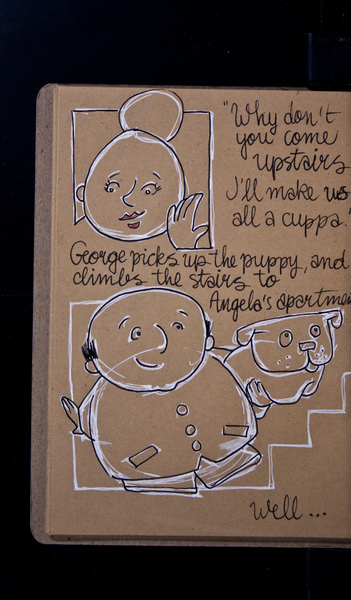 "Why don't
you come
upstairs
I'll make us
all a cuppa."
George picks up the puppy, and
climbs the stairs to
Angela's apartmen
Well...